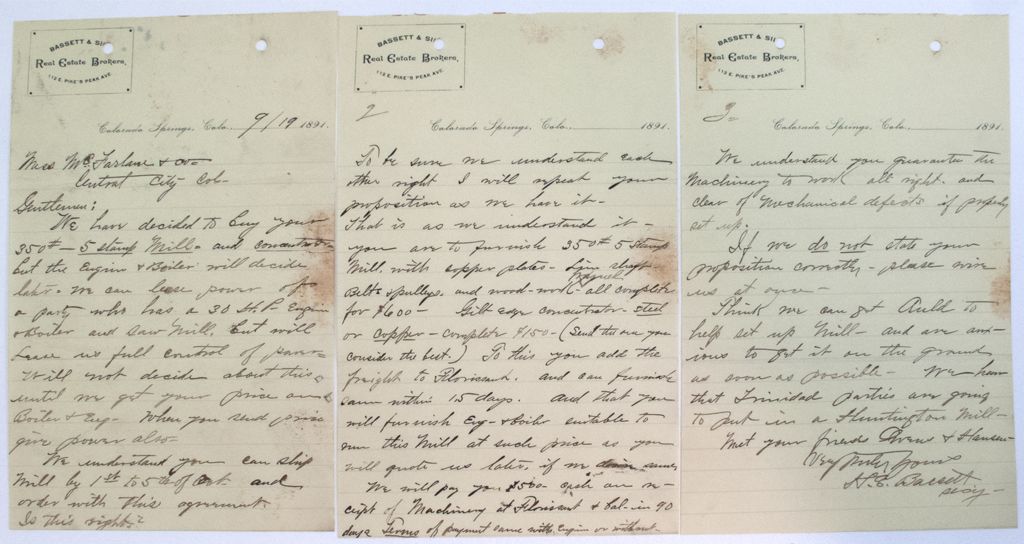 BASSETT & SI
Real Estate Brokers,
112 E. PIKE'S PEAK AVE.
Colorado Springs, Colo., 9/19 1891.
Mess McFarlane & Co
Central City Col-
Gentlemen:
We have decided to buy your
350# - 5 stamp Mill - and concentrator
but the Engine & Boiler will decide
later. We can lease power of
a party who has a 30 H.P. Engine
& Boiler and saw Mill, but will
Lease us full control of power
Will not decide about this
until we get your price on
Boiler & Eng - When you send price
give power also -
We understand you can ship
Mill by 1st to 5th of Oct and
order with this agreement.
Is this right?
BASSETT & SI
Real Estate Brokers,
112 E. PIKE'S PEAK AVE.
2
Colorado Springs, Colo., 1891.
To be sure we understand each
other right I will repeat your
proposition as we have it -
That is as we understand it -
you are to furnish 350# 5 Stamp
Mill, with copper plates - Line shaft
Belts & pulleys, and wood-work - all complete
for $600 - Gilt edge concentrator - steel
or copper - complete $150 - (Send the one you
consider the best.) To this you add the
freight to Florissant. and can furnish
same within 15 days. And that you
will furnish Eng - & Boiler suitable to
run this Mill at such price as you
will quote us later, if we
We will pay you $500 cash on re-
ceipt of Machinery at Florissant & bal - in 90
days Terms of payment same with Engine or without -
BASSETT & SI
Real Estate Brokers,
112 E. PIKE'S PEAK AVE.
3-
Colorado Springs, Colo., 1891.
We understand you guarantee the
Machinery to work all right, and
clear of Mechanical defects if properly
set up.
If we do not state your
proposition correctly - please wire
us at once -
Think we can get Auld to
help set up Mill - and are anx-
ious to get it on the ground
as soon as possible - We hear
that Trinidad parties are going
to put in a Huntington Mill -
Met your friend Owens &
Very Truly Yours
H. E. Bassett